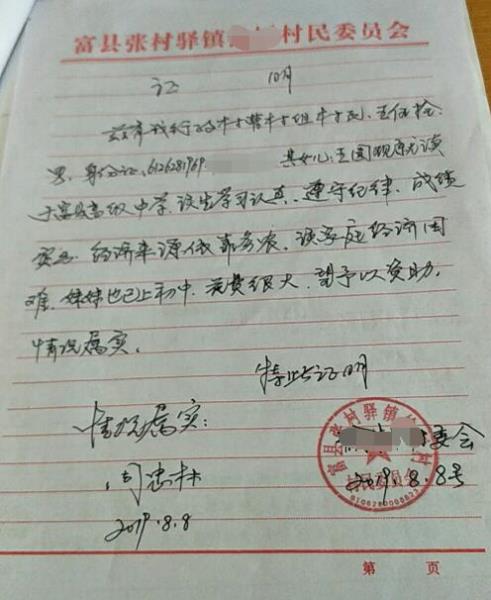 富县张村驿镇 村民委员会
证 明
兹有我行政村 村组村民,王
男,身份证,6126281969 其女儿,王圆 现就读
于富县高级中学,该生学习认真,遵守纪律,成绩
经济来源依靠务农,该家庭经济困
难,妹妹也已上初中,花费很大,望予以资助。
情况属实。
特此证明
情况属实:
富县张村驿镇 村
村民委员会
6106280000623
委会
2019.8.8号
忠林
2019.8.8
第 页